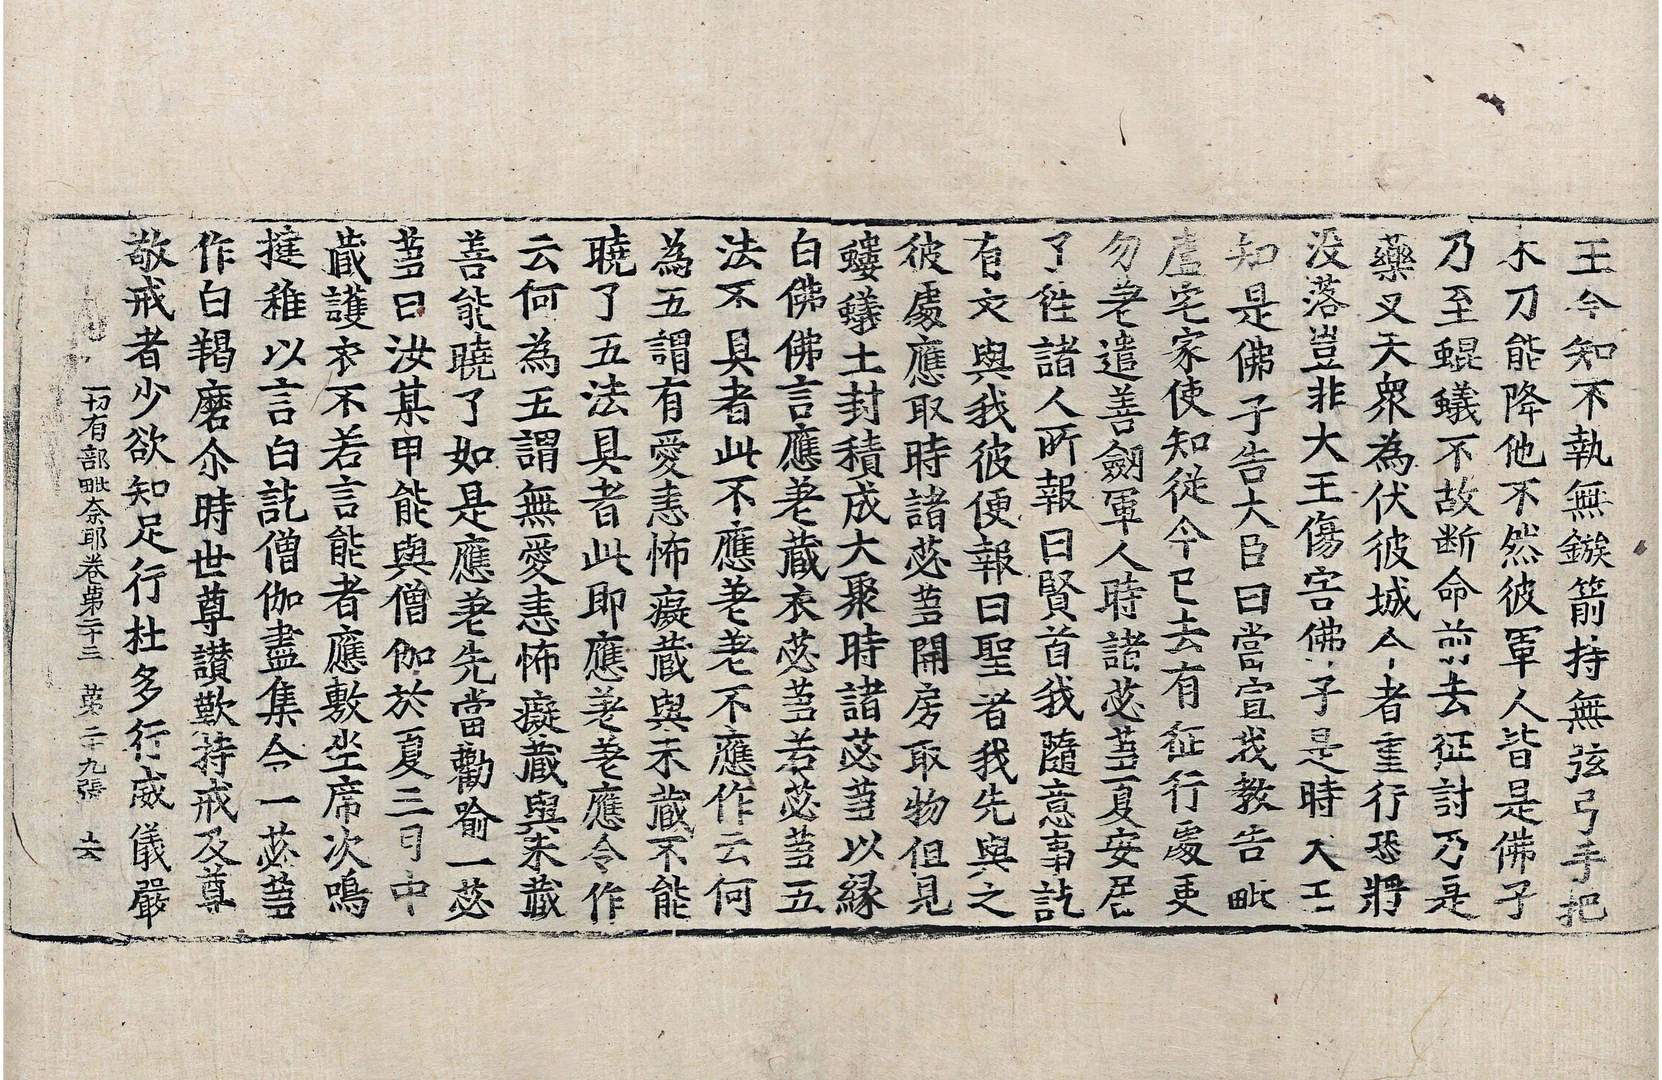 王今知不執無鏃箭持無弦弓手把
木刀能降他不然彼軍人皆是佛子
乃至蜫蟻不故断命前去征討乃是
藥叉天衆為伏彼城今者重行恐將
没落豈非大王傷害佛子是時大王
知是佛子告大臣曰當宣我教告毗
盧宅家使知從今已去有征行處更
勿差遣善劒軍人時諸苾芻夏安居
了往諸人所報曰賢首我隨意事訖
有衣與我彼便報曰聖者我先與之
彼處應取時諸苾芻開房取物但見
螻蟻土封積成大聚時諸苾芻以緣
白佛佛言應差蔵衣苾芻若苾芻五
法不具者此不應差差不應作云何
為五謂有愛恚怖癡蔵與未蔵不能
曉了五法具者此即應差差應令作
云何為五謂無愛恚怖癡蔵與未蔵
善能曉了如是應差先當勸喻一苾
芻曰汝某甲能與僧伽於夏三月中
蔵護衣不若言能者應敷坐席次鳴
揵稚以言白訖僧伽盡集令一苾芻
作白羯磨尒時世尊讃歎持戒及尊
敬戒者少欲知足行杜多行威儀嚴
一切有部毗奈耶卷第二十三 第二十九張